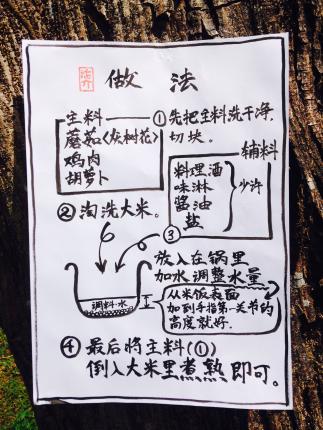 做法
主料
蘑菇(灰树花)
鸡肉
胡萝卜
①先把主料洗干净,
切块。
辅料
料理酒
味淋
酱油
盐
少许
②淘洗大米。
③
放入在锅里
加水调整水量
调料水
从米饭表面
加到手指第一关节的
高度就好.
④最后将主料(①)
倒入大米里煮熟即可。